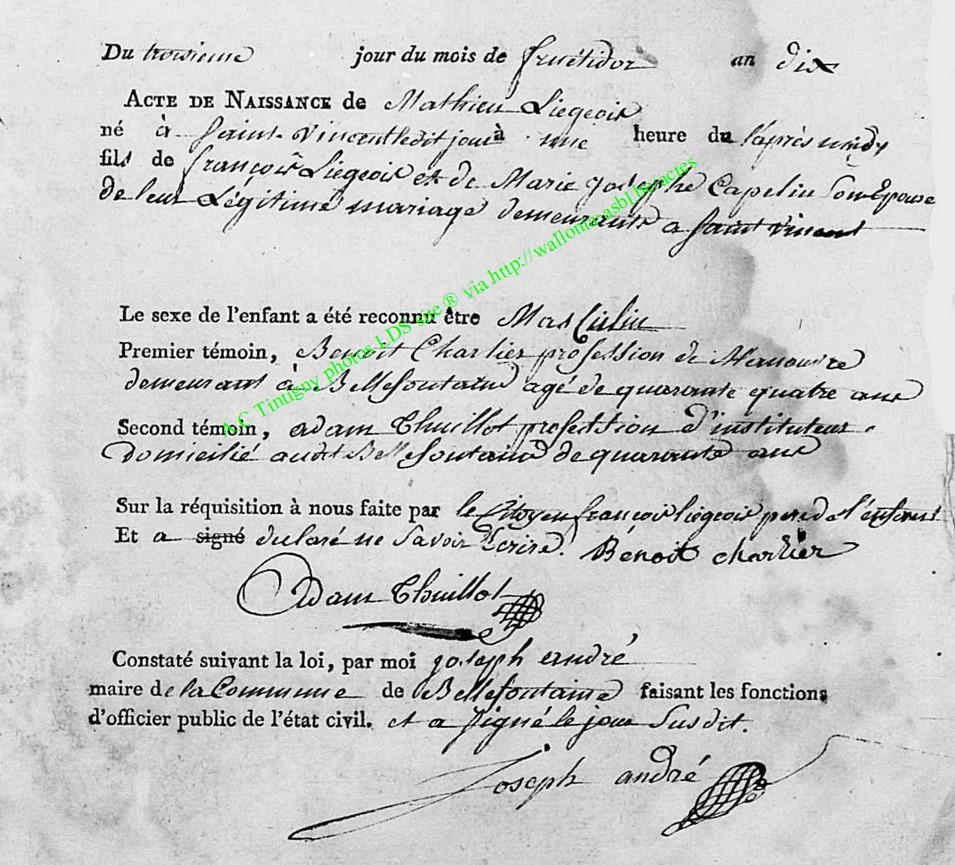 Du troisieme jour du mois de fructidor an dix
ACTE DE NAISSANCE de Mathieu Liegeois
né à Saint-Vincent ledit jour à une heure du l'après midy
fils de françois Liegeois et de Marie josephe Capelin Son Epouse
de leur Légitime mariage demeurants a Saint Vincent
Le sexe de l'enfant a été reconnu être Masculin
Premier témoin, Benoit Charlier profession de Manouvre
demeurant à Bellefontaine agé de quarante quatre ans
Second témoin, adam Thuillot profession d'instituteur.
Domicilié audit Bellefontaine de quarante ans
Sur la réquisition à nous faite par le Citoyen francois liegeois pere de l'enfant
Et a signé declaré ne Savoir Ecrire. Benoit charlier
Adam Thuillot
Constaté suivant la loi, par moi joseph andré
maire de la Commune de Bellefontaine faisant les fonctions
d'officier public de l'état civil. et a signé le jour Susdit.
Joseph andré
A.C Tintigny photos LDS site ® via http://wallonia.asbl.be/actes